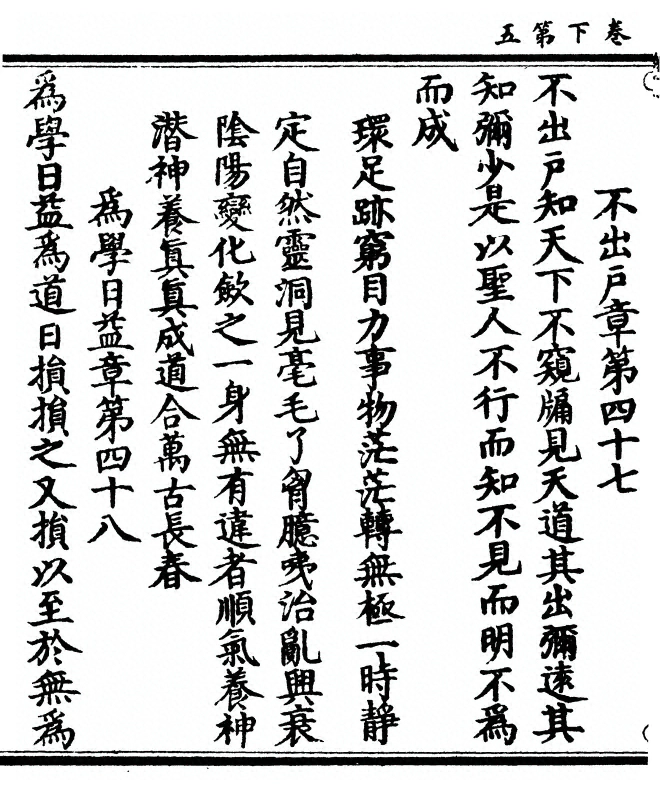 卷下第五
不出戶章第四十七
不出戶知天下不窺牖見天道其出彌遠其
知彌少是以聖人不行而知不見而明不爲
而成
環足跡窮目力事物茫茫轉無極一時靜
定自然靈洞見毫毛了胷臆咦治亂興衰
陰陽變化斂之一身無有違者順氣養神
潜神養眞眞成道合萬古長春
爲學日益章第四十八
爲學日益爲道日損損之又損以至於無爲